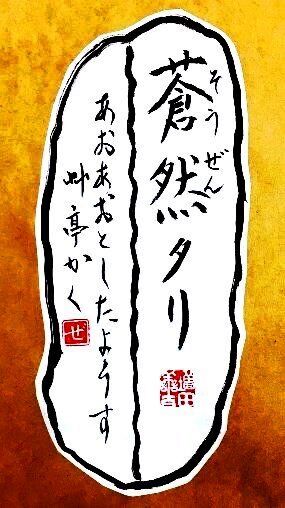 蒼然タリ
そうぜん
あおあおとしたようす
艸亭かく
せ